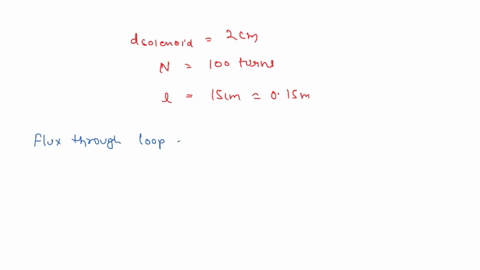 dsolenoid = 2cm
N = 100 turns
l = 15cm = 0.15m
Flux through loop -